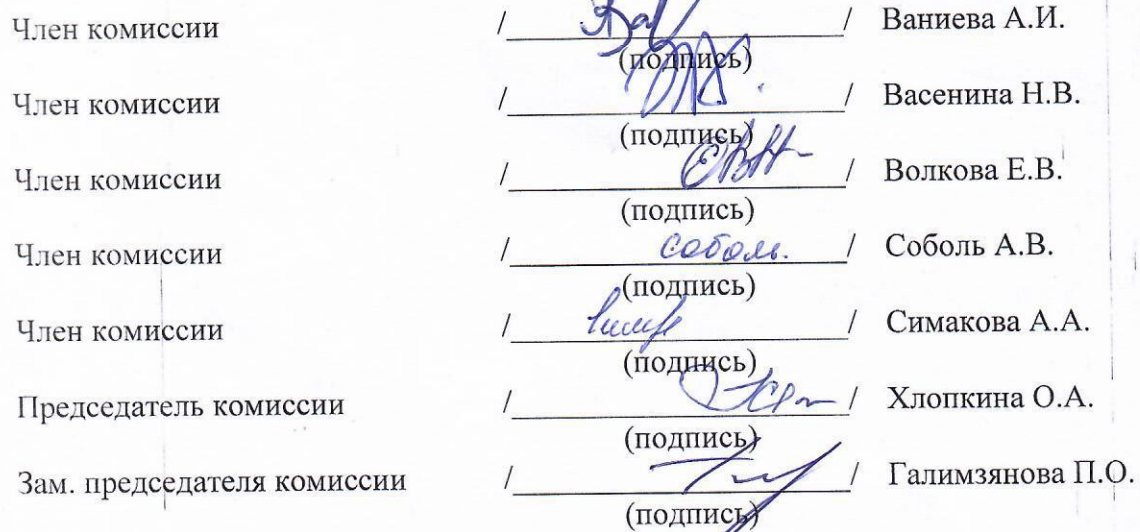 Член комиссии / / Ваниева А.И.
(подпись)
Член комиссии / / Васенина Н.В.
(подпись)
Член комиссии / / Волкова Е.В.
(подпись)
Член комиссии / соболь. / Соболь А.В.
(подпись)
Член комиссии / / Симакова А.А.
(подпись)
Председатель комиссии / / Хлопкина О.А.
(подпись)
Зам. председателя комиссии / / Галимзянова П.О.
(подпись)